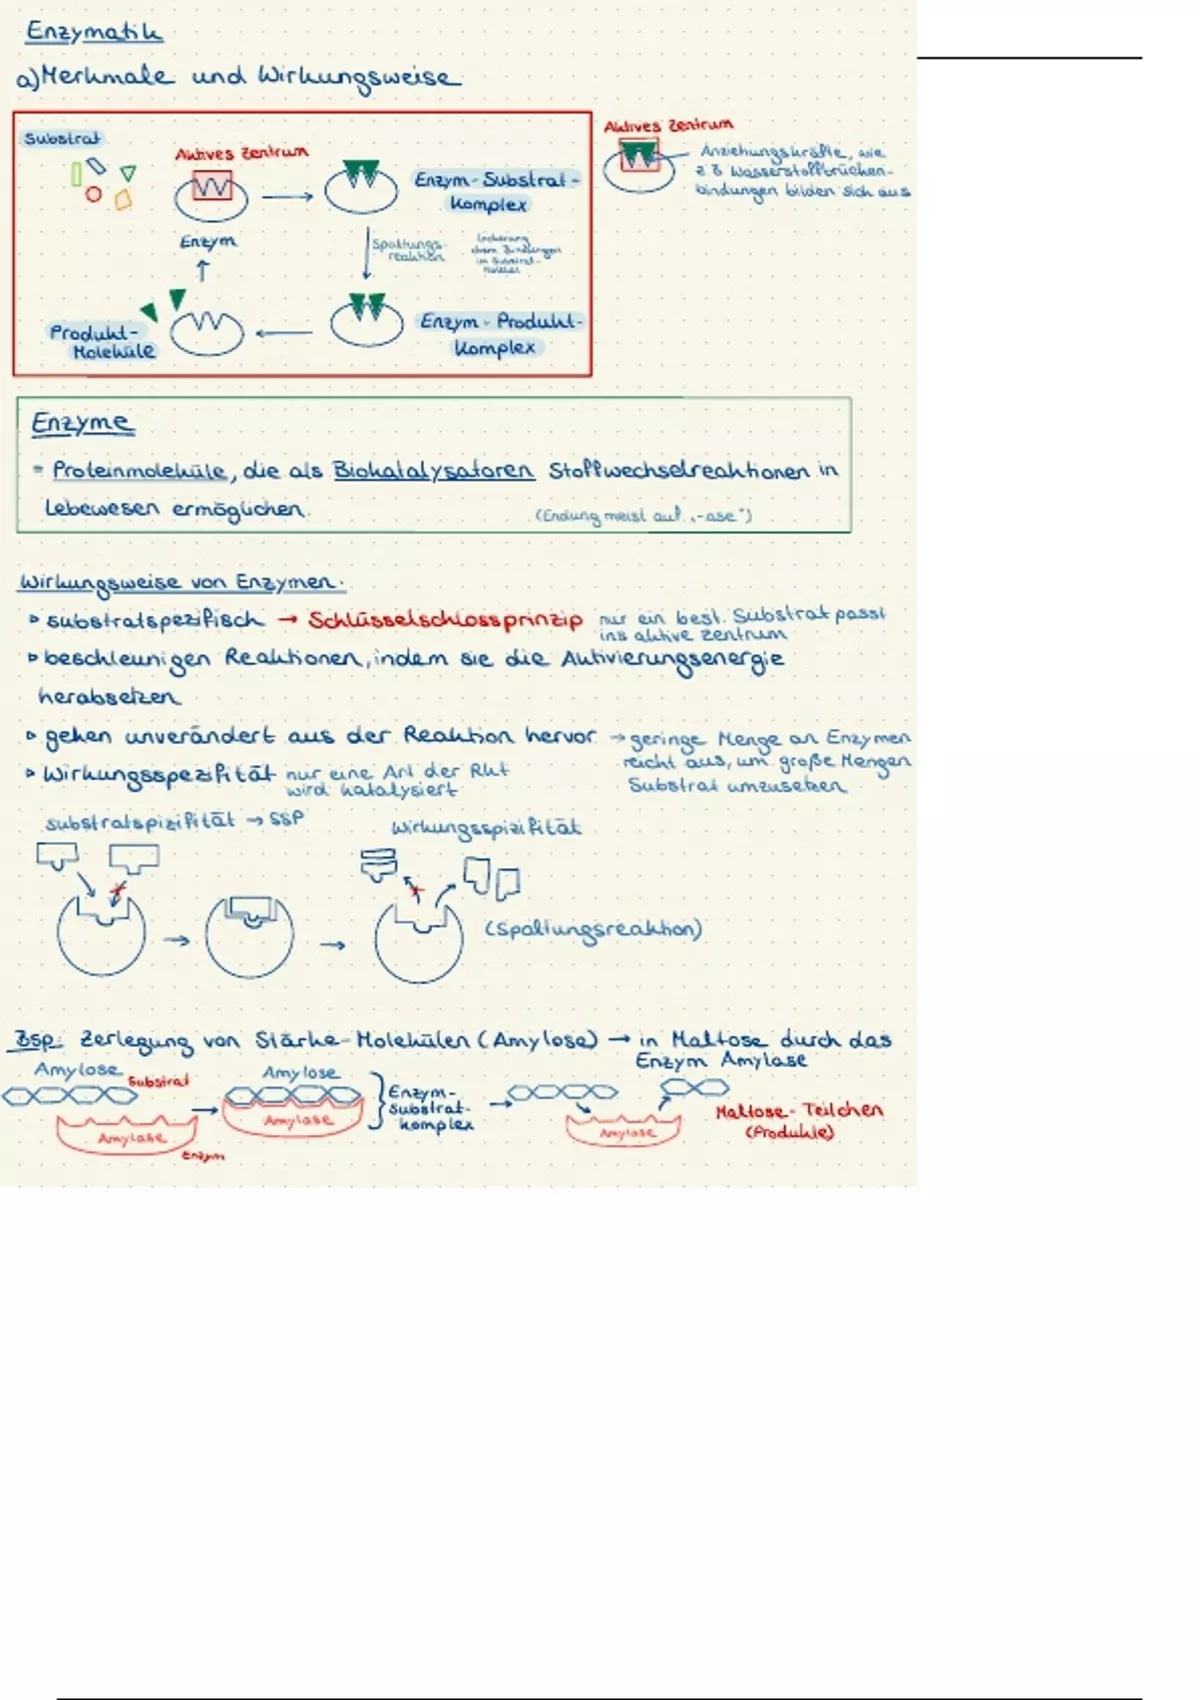 Enzymatik
a) Merkmale und Wirkungsweise
Substrat
Aktives Zentrum
Enzym
Enzym-Substrat-
Komplex
Spaltungs-
reaktion
Lockerung
Bindungen
im Substrat-
Enzym-Produkt-
Komplex
Produkt-
Moleküle
Aktives Zentrum
Anziehungskräfte, wie
z B Wasserstoffbrücken-
bindungen bilden sich aus
Enzyme
= Proteinmoleküle, die als Biokatalysatoren Stoffwechselreaktionen in
Lebewesen ermöglichen.
(Endung meist auf „-ase")
Wirkungsweise von Enzymen:
▹ substratspezifisch → Schlüsselschlossprinzip nur ein best. Substrat passt
ins aktive Zentrum
▹ beschleunigen Reaktionen, indem sie die Aktivierungsenergie
herabsetzen
▹ gehen unverändert aus der Reaktion hervor → geringe Menge an Enzymen
reicht aus, um große Mengen
Substrat umzusetzen
▹ Wirkungsspezifität nur eine Art der Rkt
wird katalysiert
substratspizifität → SSP
Wirkungsspizifität
(Spaltungsreaktion)
Bsp: Zerlegung von Stärke-Molekülen (Amylose) → in Maltose durch das
Enzym Amylase
Amylose Substrat
Amylase
Enzym
Amylose
Amylase
Enzym-
Substrat-
komplex
Amylase
Maltose-Teilchen
(Produkte)